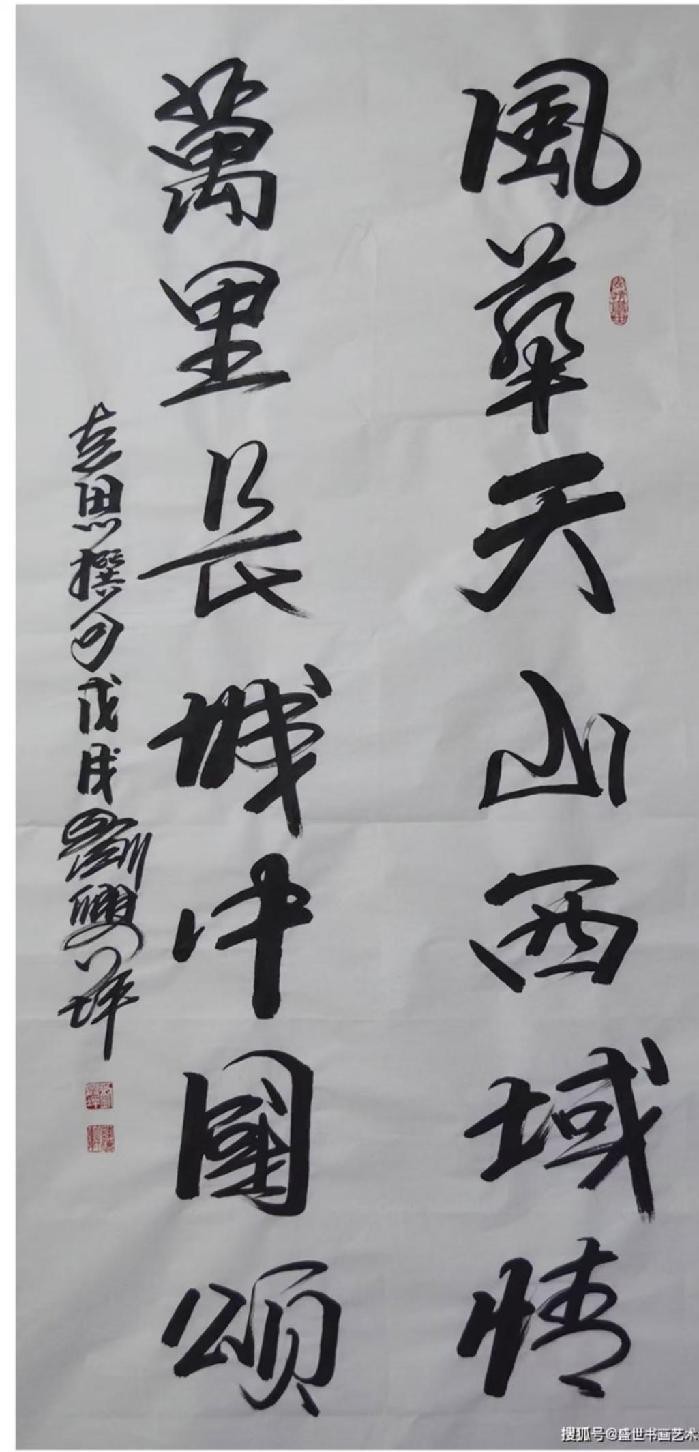 風華天山西域情
萬里長城中國頌
志思撰句戊戌劉興祥
搜狐号@盛世书画艺术